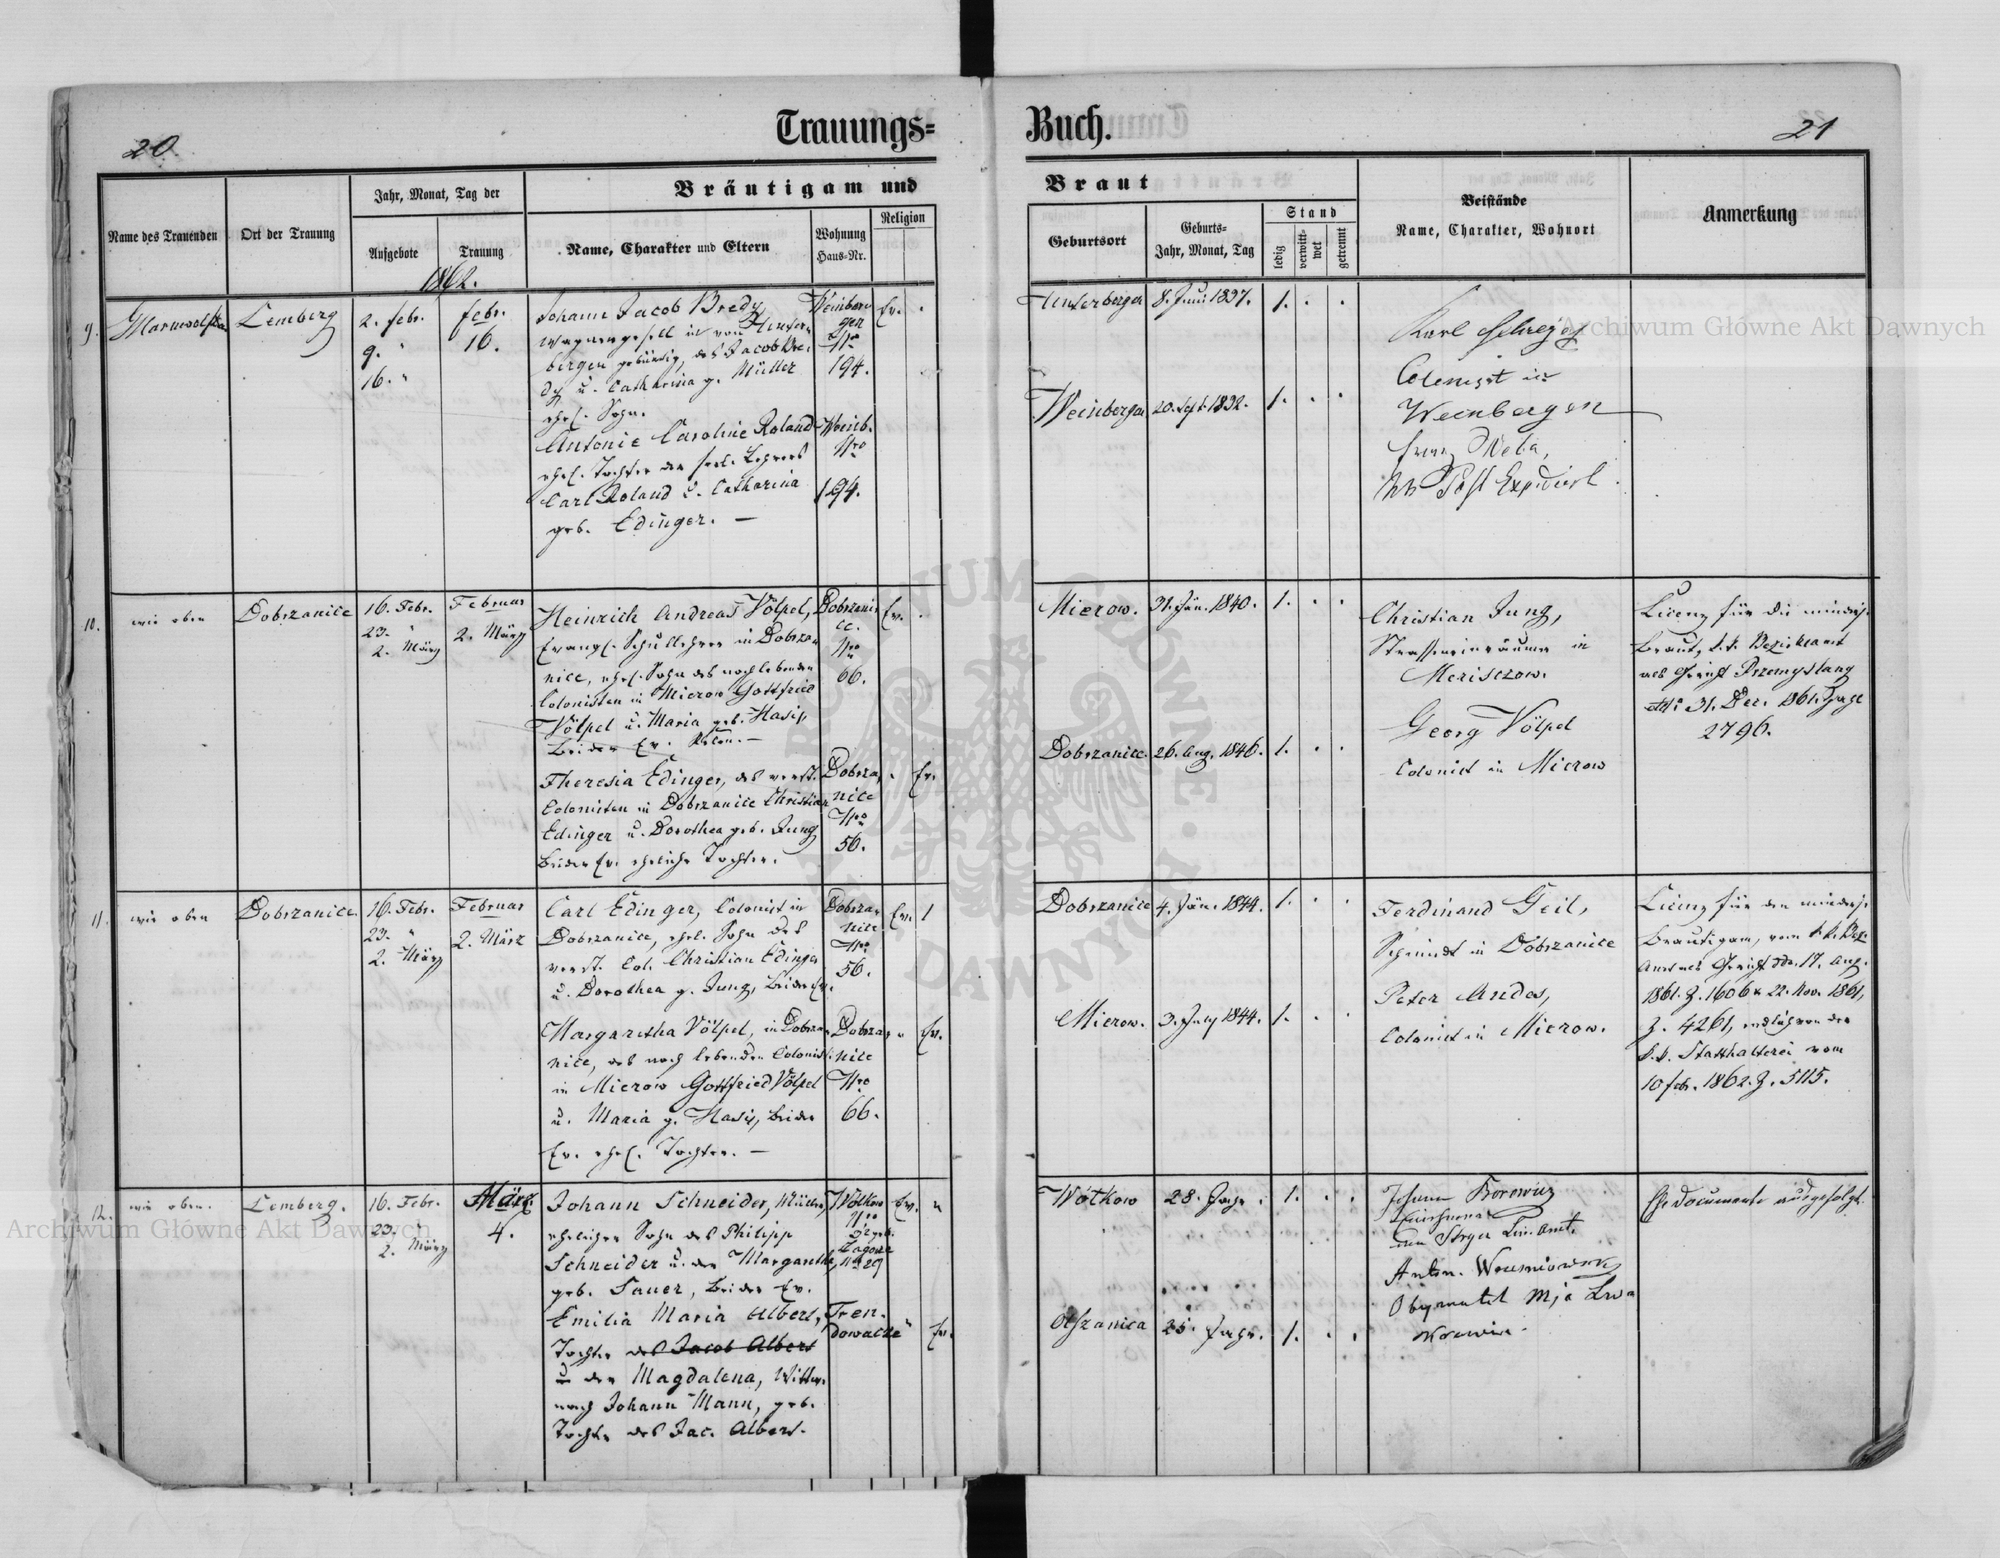 20
Trauungs=
Buch.
21
Name des Trauenden
Ort der Trauung
Jahr, Monat, Tag der
Aufgebote
Trauung
Bräutigam und
Name, Charakter und Eltern
Wohnung
Haus-Nr.
Religion
Braut
Geburtsort
Geburts-
Jahr, Monat, Tag
Stand
ledig
verwitt-
wet
getrennt
Beistände
Name, Charakter, Wohnort
Anmerkung
1862.
9.
Lemberg
2. Febr.
9. "
16. "
Febr.
16.
Johann Jacob Bredy,
Wagnergesell in von Unter-
bergen gebürtig, des Jacob Bre-
dy u. Catharina g. Müller
ehel. Sohn.
Antonie Caroline Roland
ehel. Tochter des Lehrers
Carl Roland u. Catharina
geb. Edinger. —
Weinber-
gen
Nro
194.
Weinb.
Nro
194.
Ev.
Unterbergen
8. Juni 1837.
1.
Weinbergen
20. Sept. 1832.
1.
Karl
Colonist in
Weinbergen
Franz
Post Expedient
10.
wie oben
Dobrzanice
16. Febr.
23. "
2. März
Februar
2. März
Heinrich Andreas Völpel,
Evangl. Schullehrer in Dobrza-
nice, ehel. Sohn des noch lebenden
Colonisten in Mierow Gottfried
Völpel u. Maria geb. Hasis,
beider Ev.
Theresia Edinger, des verst.
Colonisten in Dobrzanice Christian
Edinger u. Dorothea geb. Jung
beider Ev. eheliche Tochter.
Dobrzani-
ce.
Nro
66.
Dobrza-
nice
Nro
56.
Ev.
Ev.
Mierow.
31. Jän. 1840.
1.
Dobrzanice
26. Aug. 1846.
1.
Christian Jung,
Strasseneinräumer in
Merisczow.
Georg Völpel
Colonist in Mierow
Licenz für die minderj.
Braut, k.k. Bezirksamt
als Gericht Przemyslany
31. Dec. 1861. Zahl
2796.
11.
wie oben
Dobrzanice
16. Febr.
23. "
2. März
Februar
2. März
Carl Edinger, Colonist in
Dobrzanice, ehel. Sohn des
verst. Col. Christian Edinger
u. Dorothea g. Jung, beider Ev.
Margaretha Völpel, in Dobrza-
nice, des noch lebenden Colonist.
in Mierow Gottfried Völpel
u. Maria g. Hasis, beider
Ev. ehel. Tochter. —
Dobrza-
nice
Nro
56.
Dobrza-
nice
Nro
66.
Ev.
Ev.
Dobrzanice
4. Jän. 1844.
1.
Mierow.
3. July 1844.
1.
Ferdinand Geil,
Schmidt in Dobrzanice
Peter Andes,
Colonist in Mierow.
Licenz für den minderj.
Bräutigam, vom k.k. Bez.
Amt als Gericht ddo. 17. Aug.
1861. Z. 1606 u. 22. Nov. 1861,
Z. 4261, endlich von der
k.k. Statthalterei vom
10 Feb. 1862. Z. 5115.
12.
wie oben.
Lemberg.
16. Febr.
23. "
2. März
März.
4.
Johann Schneider, Müller,
ehelicher Sohn des Philipp
Schneider u. der Margaretha,
geb. Sauer, beider Ev.
Emilia Maria Albert,
Tochter des Jacob Albert
u der Magdalena, Wittwe
nach Johann Mann, geb.
Tochter des Jac. Albert.
Wolkow
Nro
29
Tren-
dowacze
Ev.
Ev.
Wolkow
28. Jahr.
1.
Olszanica
25. Jahr.
1.
Johann Borowicz
Anton.
Obywatel
Ehedocumente ausgefolgt.
Archiwum Główne Akt Dawnych
Archiwum Główne Akt Dawnych
ARCHIWUM GŁÓWNE AKT DAWNYCH